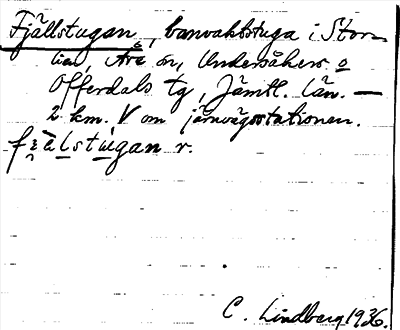 Fjällstugan, banvaktstuga i Stor-
lien, Åre sn, Undersåkers o
Offerdals tg, Jämtl. län. —
2 km. V om järnvägsstationen.
fjälstugan r.
C. Lindberg 1936.